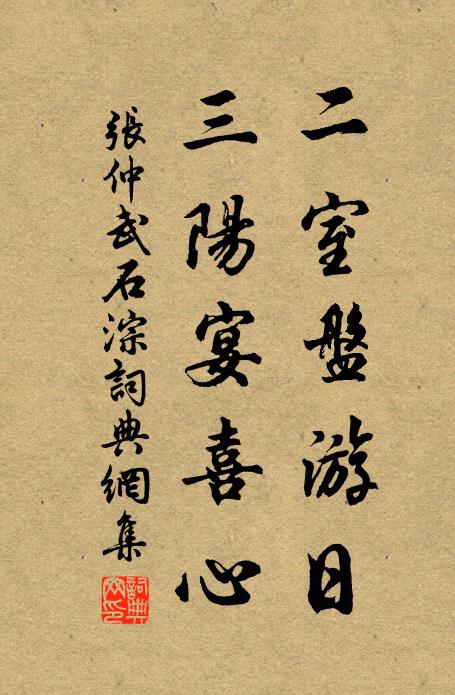 二室盤游日
三陽宴喜心
張仲武石淙詞典網集
詞典網印